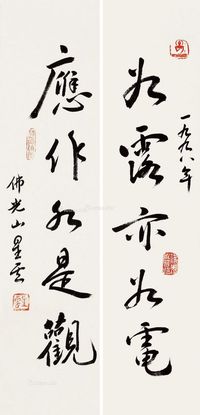 一九九八年
如露亦如電
應作如是觀
佛光山星雲